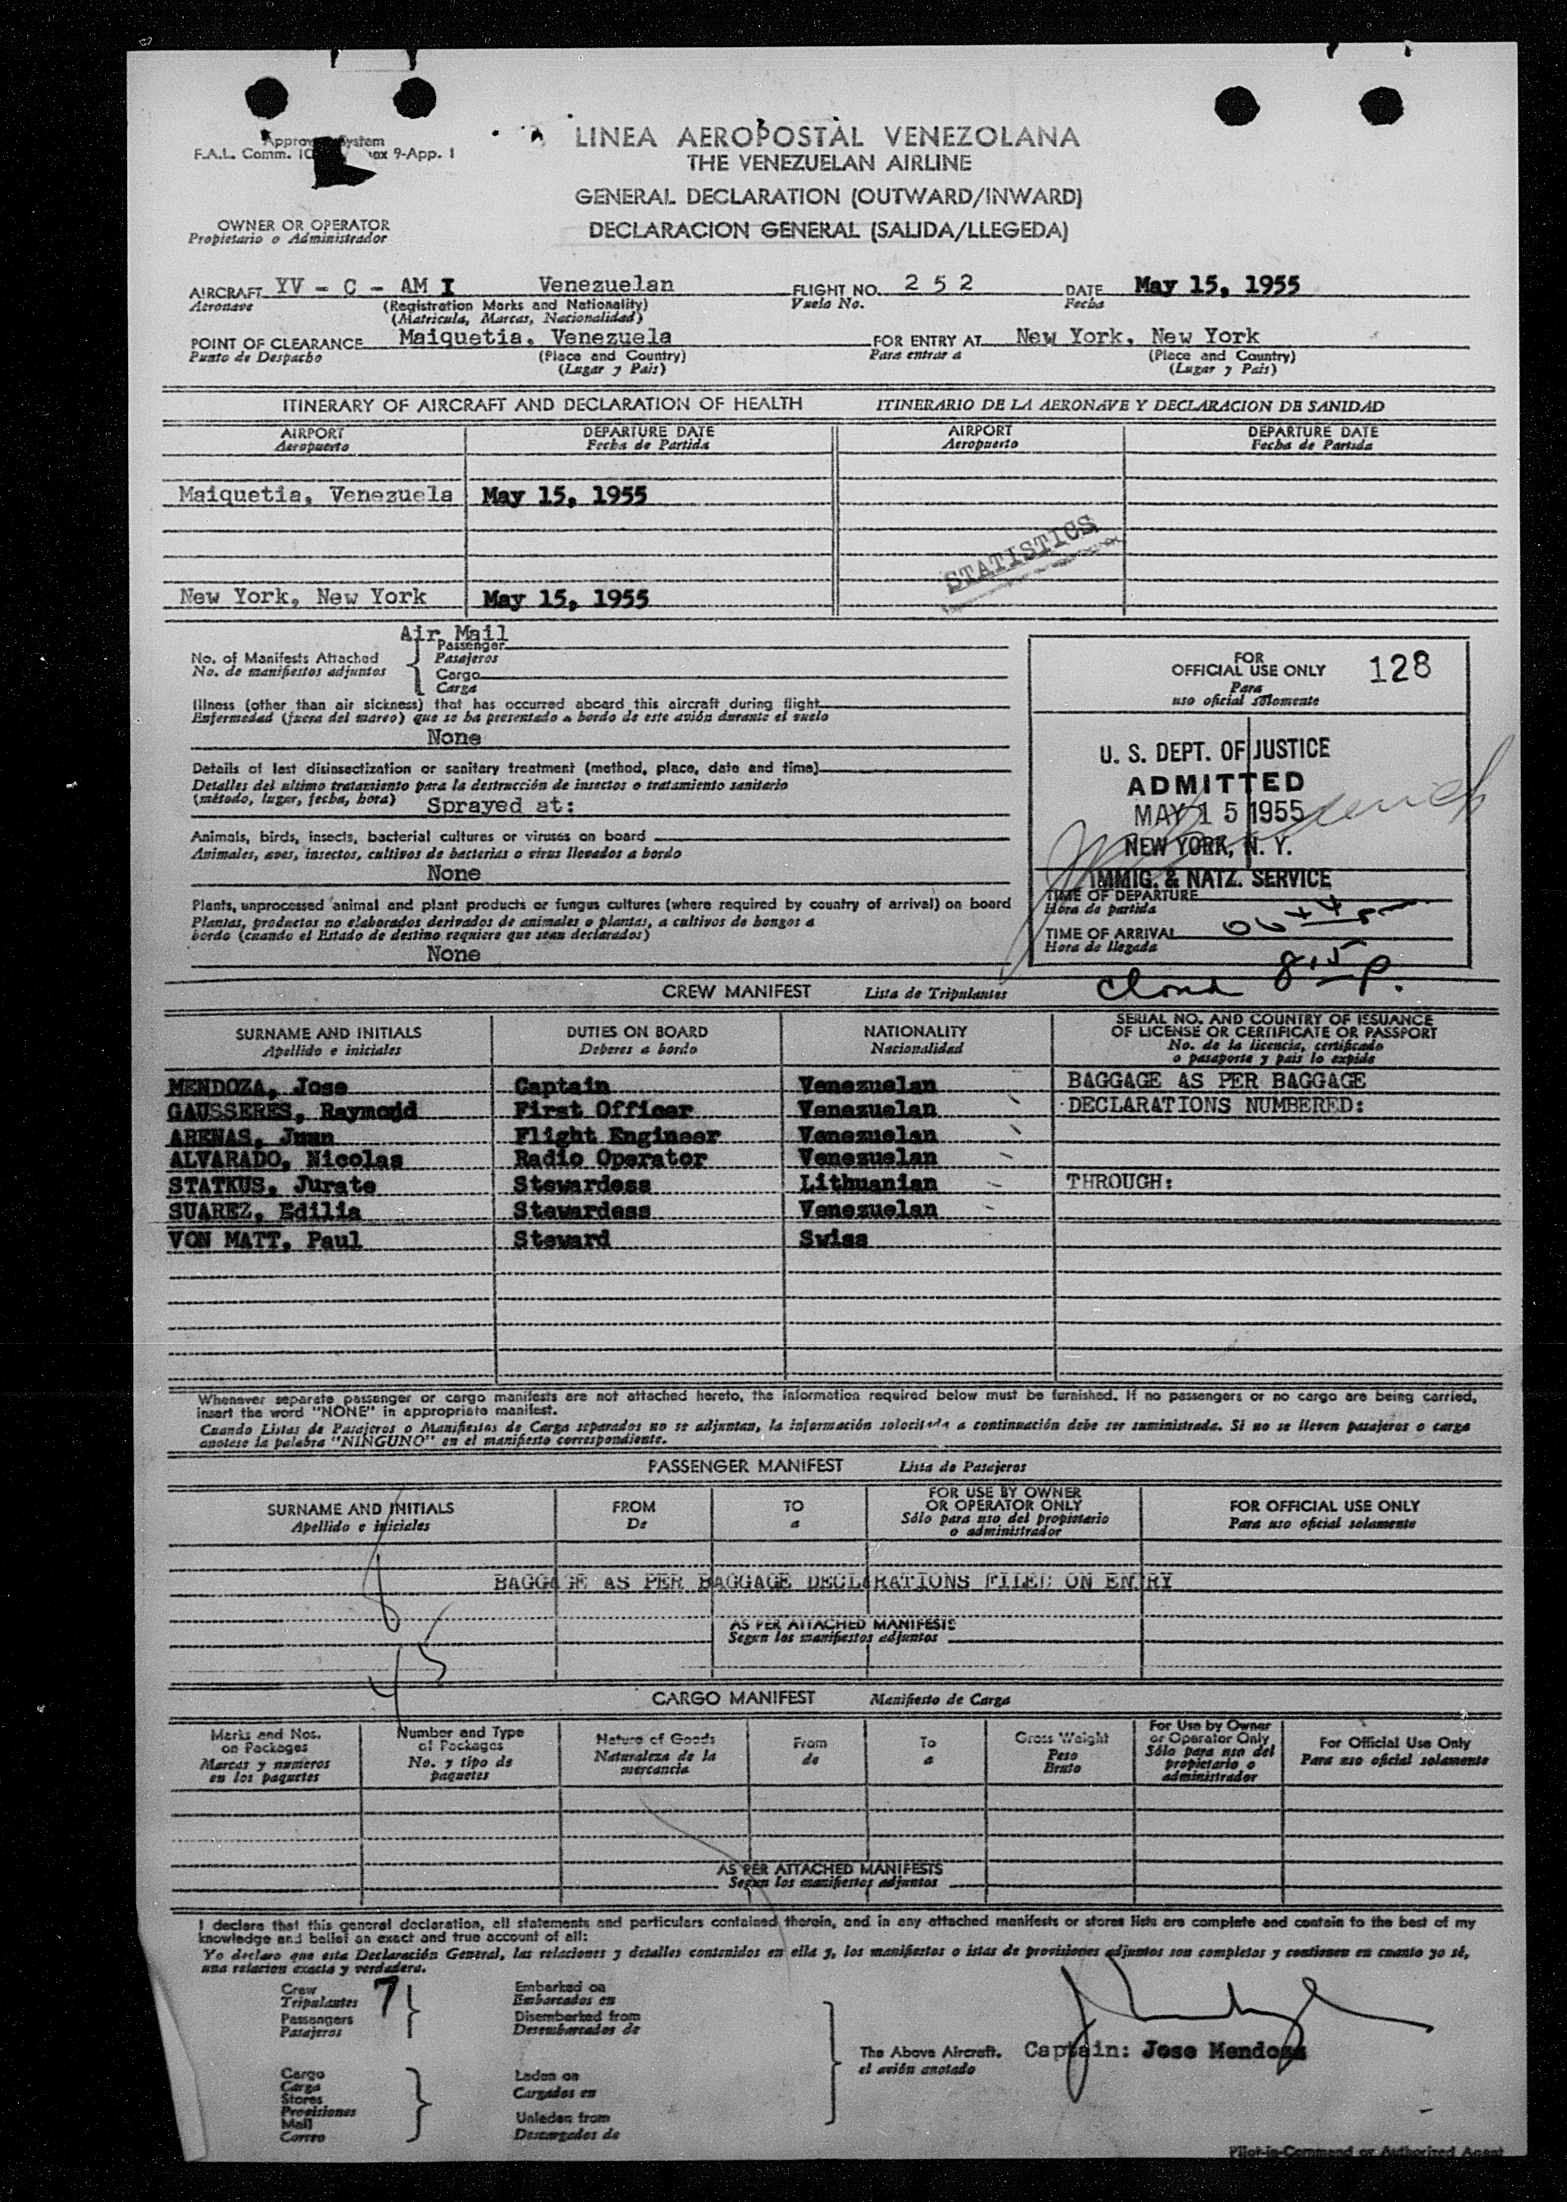 LINEA AEROPOSTAL VENEZOLANA
THE VENEZUELAN AIRLINE
GENERAL DECLARATION (OUTWARD/INWARD)
DECLARACION GENERAL (SALIDA/LLEGEDA)
F.A.L. Comm. 9-App. 1
OWNER OR OPERATOR
Propietario o Administrador
AIRCRAFT YV - C - AM I Venezuelan FLIGHT NO. 2 5 2 DATE May 15, 1955
Aeronave (Registration Marks and Nationality) Vuelo No. Fecha
(Matricula, Marcas, Nacionalidad)
POINT OF CLEARANCE Maiquetia, Venezuela FOR ENTRY AT New York, New York
Punto de Despacho (Place and Country) Para entrar a (Place and Country)
(Lugar y Pais) (Lugar y Pais)
ITINERARY OF AIRCRAFT AND DECLARATION OF HEALTH ITINERARIO DE LA AERONAVE Y DECLARACION DE SANIDAD
AIRPORT DEPARTURE DATE AIRPORT DEPARTURE DATE
Aeropuerto Fecha de Partida Aeropuerto Fecha de Partida
Maiquetia, Venezuela May 15, 1955
STATISTICS
New York, New York May 15, 1955
Air Mail
No. of Manifests Attached Passenger
No. de manifiestos adjuntos Pasajeros
Cargo
Carga
Illness (other than air sickness) that has occurred aboard this aircraft during flight
Enfermedad (fuera del mareo) que se ha presentado a bordo de este avión durante el vuelo
None
Details of last disinsectization or sanitary treatment (method, place, date and time)
Detalles del ultimo tratamiento para la destrucción de insectos o tratamiento sanitario
(método, lugar, fecha, hora) Sprayed at:
Animals, birds, insects, bacterial cultures or viruses on board
Animales, aves, insectos, cultivos de bacterias o virus llevados a bordo
None
Plants, unprocessed animal and plant products or fungus cultures (where required by country of arrival) on board
Plantas, productos no elaborados derivados de animales o plantas, a cultivos de hongos a
bordo (cuando el Estado de destino requiere que sean declarados)
None
FOR
OFFICIAL USE ONLY 128
Para
uso oficial solomente
U. S. DEPT. OF JUSTICE
ADMITTED
MAY 15 1955
NEW YORK, N. Y.
IMMIG. & NATZ. SERVICE
TIME OF DEPARTURE
Hora de partida
TIME OF ARRIVAL
Hora de llegada
815 P.
CREW MANIFEST Lista de Tripulantes
SURNAME AND INITIALS DUTIES ON BOARD NATIONALITY SERIAL NO. AND COUNTRY OF ISSUANCE
OF LICENSE OR CERTIFICATE OR PASSPORT
Apellido e iniciales Deberes a bordo Nacionalidad No. de la licencia, certificado
o pasaporte y pais lo expide
MENDOZA, Jose Captain Venezuelan BAGGAGE AS PER BAGGAGE
GAUSSERES, Raymond First Officer Venezuelan DECLARATIONS NUMBERED:
ARENAS, Juan Flight Engineer Venezuelan
ALVARADO, Nicolas Radio Operator Venezuelan
STATKUS, Jurate Stewardess Lithuanian THROUGH:
SUAREZ, Edilia Stewardess Venezuelan
VON MATT, Paul Steward Swiss
Whenever separate passenger or cargo manifests are not attached hereto, the information required below must be furnished. If no passengers or no cargo are being carried,
insert the word "NONE" in appropriate manifest.
Cuando Listas de Pasajeros o Manifiestos de Carga separados no se adjuntan, la información solocitada a continuación debe ser suministrada. Si no se lleven pasajeros o carga
anotese la palabra "NINGUNO" en el manifiesto correspondiente.
PASSENGER MANIFEST Lista de Pasajeros
SURNAME AND INITIALS FROM TO FOR USE BY OWNER
OR OPERATOR ONLY FOR OFFICIAL USE ONLY
Apellido e iniciales De a Sólo para uso del propietario
o administrador Para uso oficial solamente
BAGGAGE AS PER BAGGAGE DECLARATIONS FILED ON ENTRY
AS PER ATTACHED MANIFESTS
Segun los manifiestos adjuntos
45
CARGO MANIFEST Manifiesto de Carga
Marks and Nos.
on Packages
Marcas y numeros
en los paquetes
Number and Type
of Packages
No. y tipo de
paquetes
Nature of Goods
Naturaleza de la
mercancia
From
de
To
a
Gross Weight
Peso
Bruto
For Use by Owner
or Operator Only
Sólo para uso del
propietario o
administrador
For Official Use Only
Para uso oficial solamente
AS PER ATTACHED MANIFESTS
Segun los manifiestos adjuntos
I declare that this general declaration, all statements and particulars contained therein, and in any attached manifests or stores lists are complete and contain to the best of my
knowledge and belief an exact and true account of all:
Yo declaro que esta Declaración General, las relaciones y detalles contenidos en ella y, los manifiestos o istas de provisiones adjuntos son completos y contienen en cuanto yo sé,
una relacion exacta y verdadera.
Crew 7
Tripulantes
Passengers
Pasajeros
Embarked on
Embarcados en
Disembarked from
Desembarcados de
Cargo
Carga
Stores
Provisiones
Mail
Correo
Laden on
Cargados en
Unladen from
Descargados de
The Above Aircraft.
el avión anotado
Captain: Jose Mendoza
Pilot-in-Command or Authorized Agent